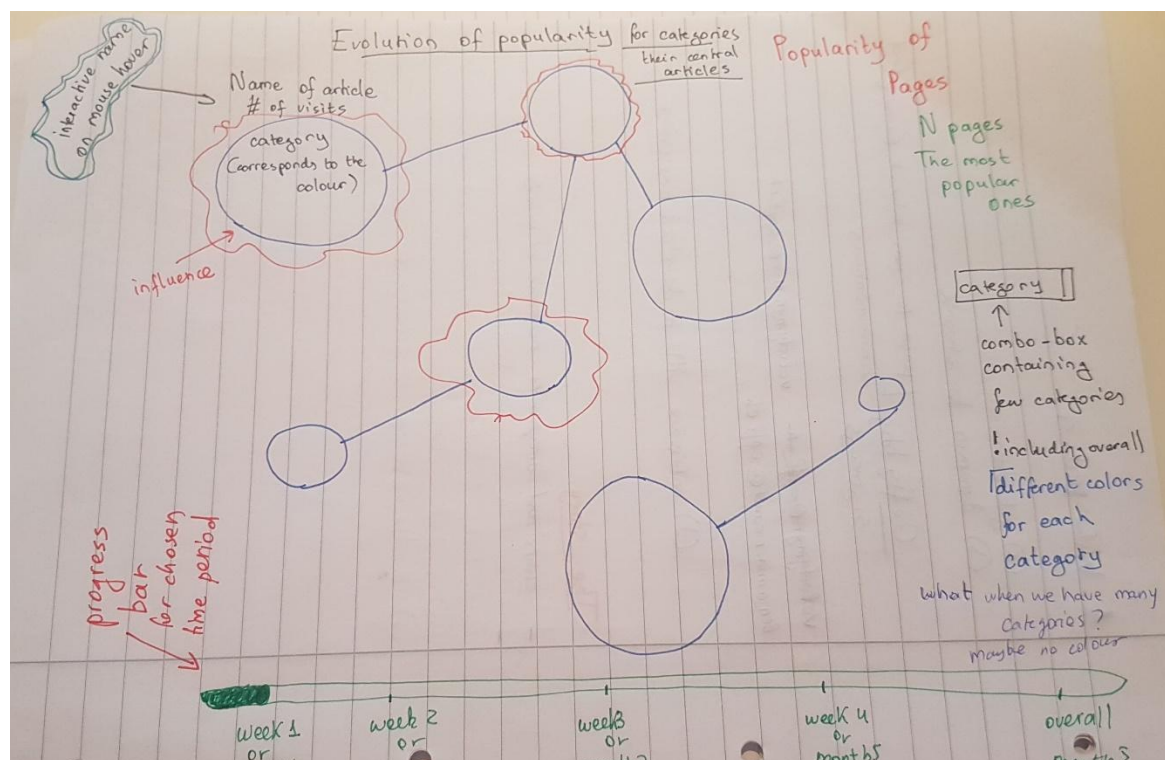 interactive name
on mouse hover
Evolution of popularity for categories
their central
articles
Popularity of
Pages
N pages
The most
popular
ones
Name of article
# of visits
category
(corresponds to the
colour)
influence
category
combo-box
containing
few categories
! including overall
different colors
for each
category
what when we have many
categories?
maybe no colour
progress
bar
for chosen
time period
week 1
or
week 2
or
week3
or
week 4
or
months
overall